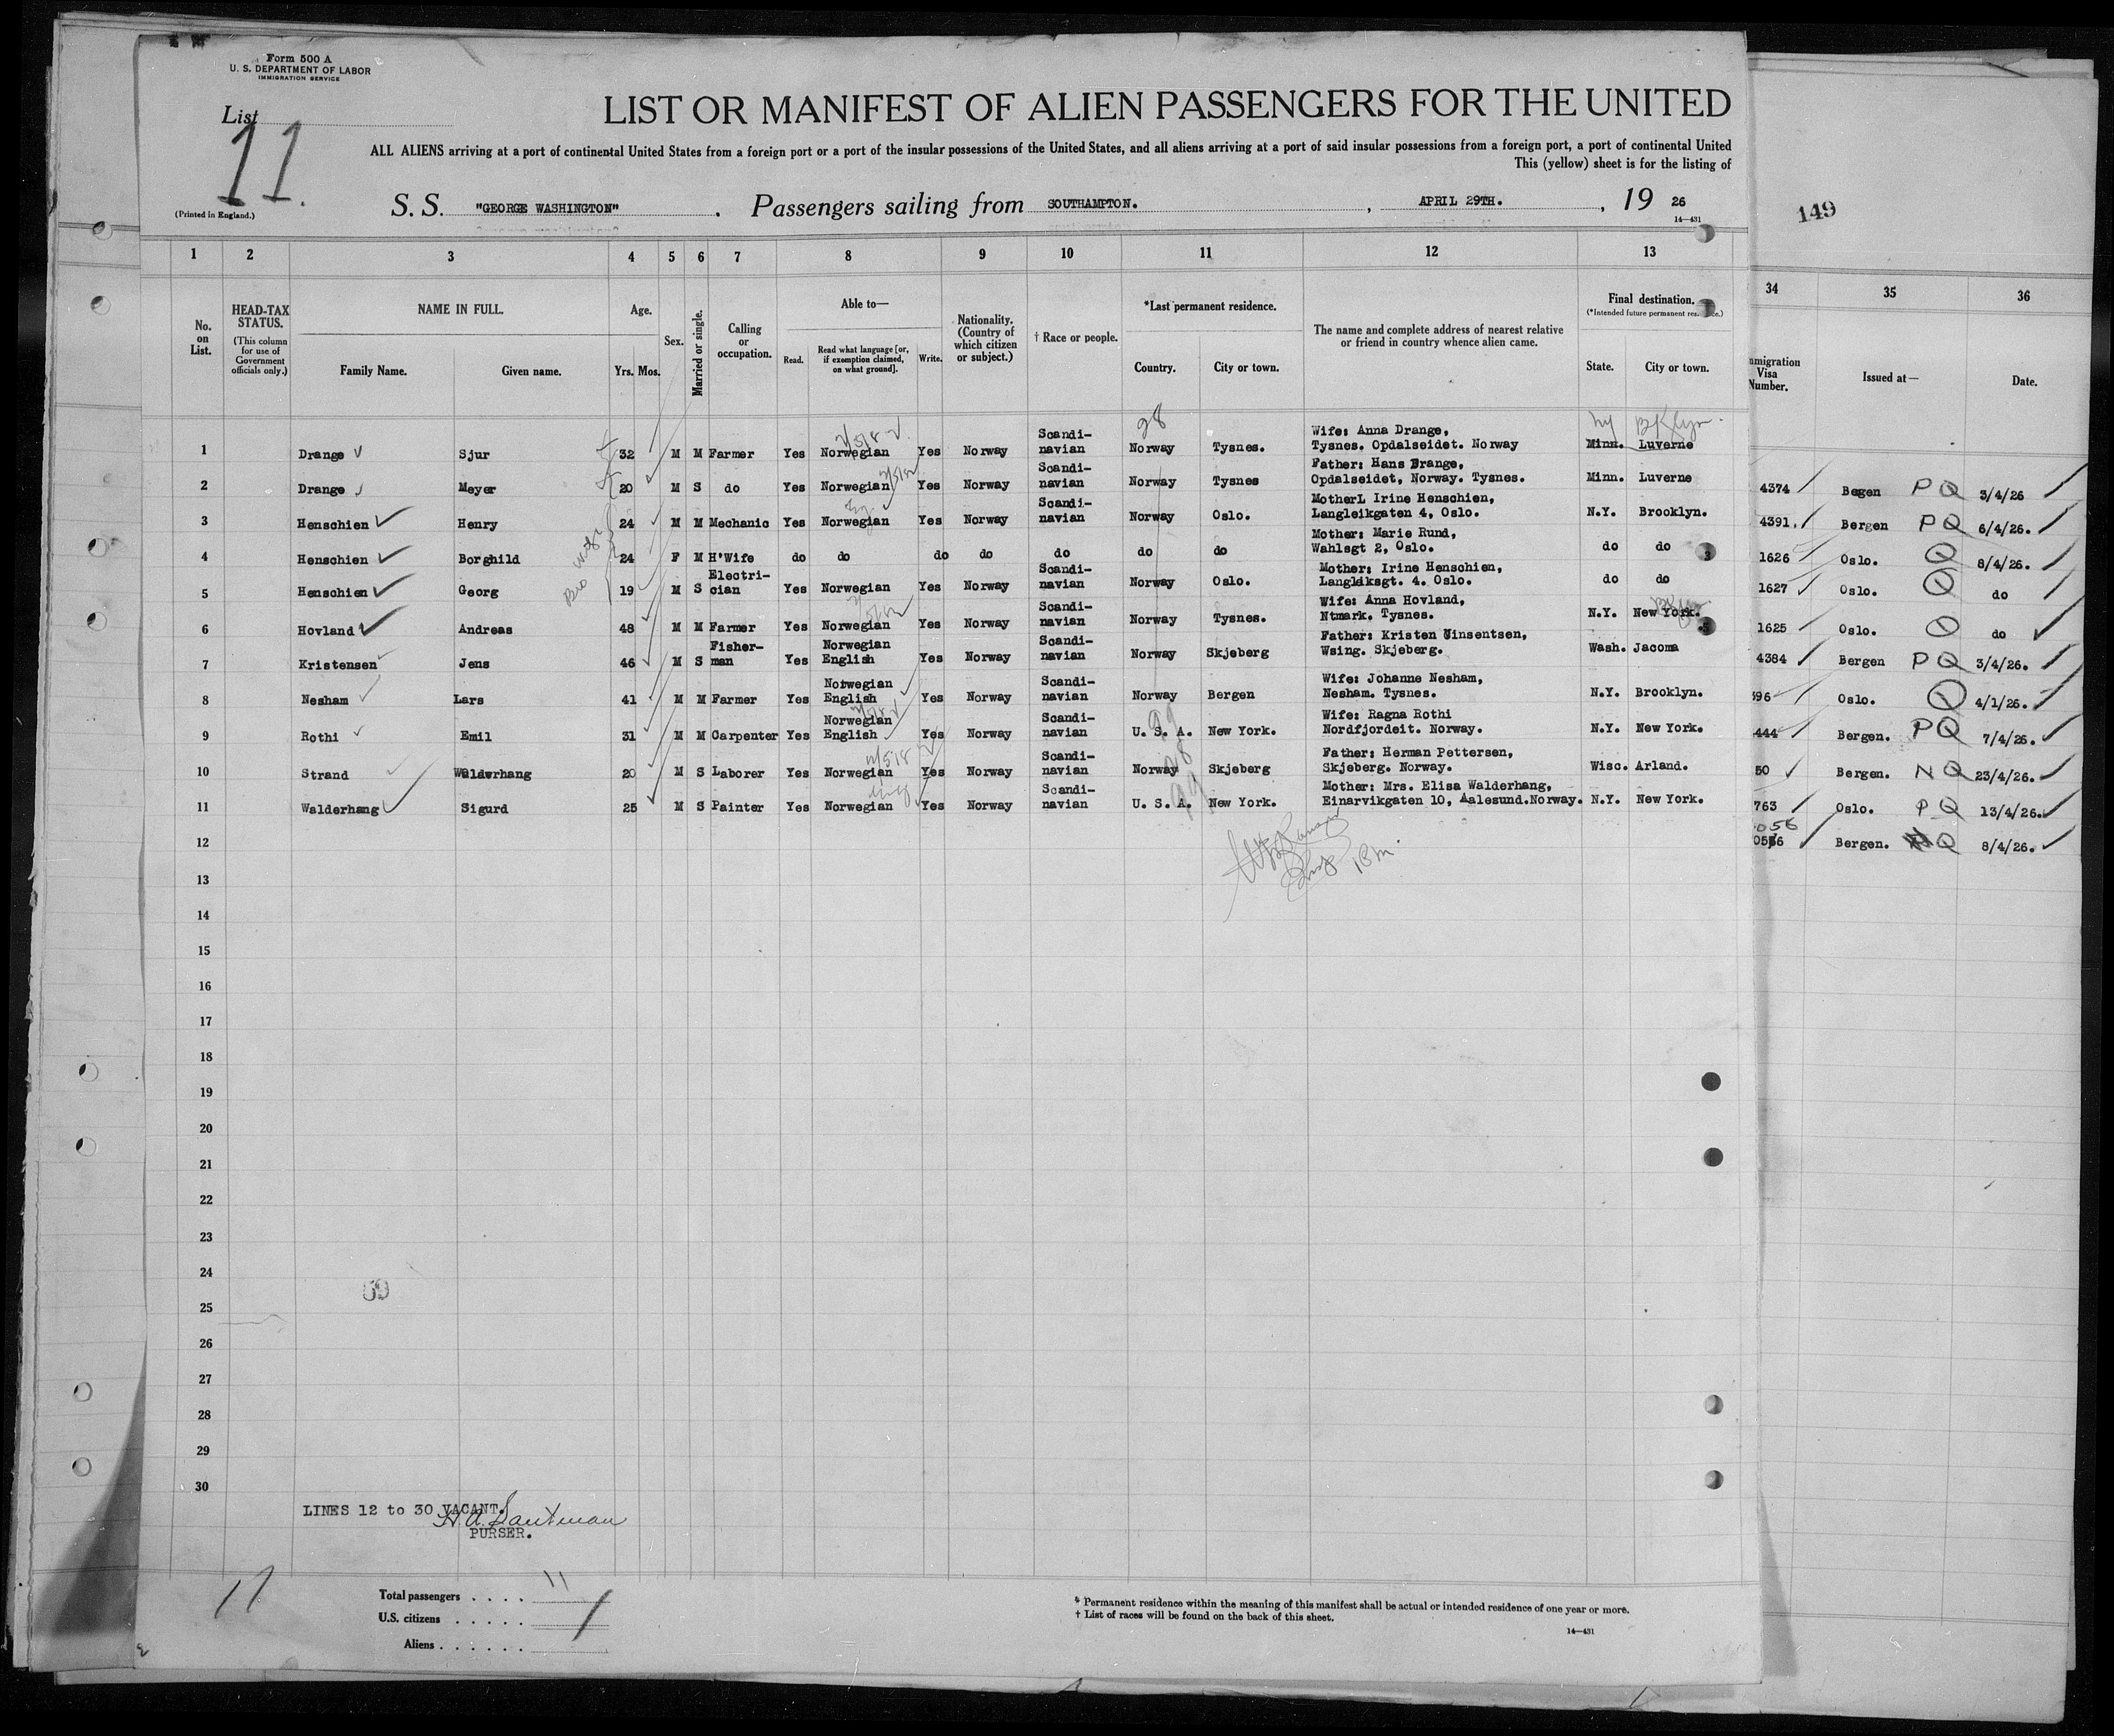 Form 500 A
U. S. DEPARTMENT OF LABOR
IMMIGRATION SERVICE
List
11.
(Printed in England.)
LIST OR MANIFEST OF ALIEN PASSENGERS FOR THE UNITED
ALL ALIENS arriving at a port of continental United States from a foreign port or a port of the insular possessions of the United States, and all aliens arriving at a port of said insular possessions from a foreign port, a port of continental United
This (yellow) sheet is for the listing of
S. S. "GEORGE WASHINGTON". Passengers sailing from SOUTHAMPTON. , APRIL 29TH. , 19 26
14—431
149
1 2 3 4 5 6 7 8 9 10 11 12 13 34 35 36
No. on List.
HEAD-TAX STATUS.
(This column for use of Government officials only.)
NAME IN FULL.
Family Name. Given name.
Age.
Yrs. Mos.
Sex.
Married or single.
Calling or occupation.
Able to—
Read. Read what language [or, if exemption claimed, on what ground]. Write.
Nationality. (Country of which citizen or subject.)
† Race or people.
*Last permanent residence.
Country. City or town.
The name and complete address of nearest relative or friend in country whence alien came.
Final destination.
State. City or town.
Visa Number.
Issued at—
Date.
28 Ny BKlyn.
1 Drange Sjur 32 M M Farmer Yes Norwegian Yes Norway Scandi-navian Norway Tysnes. Wife: Anna Drange, Tysnes. Opdalseidet. Norway Minn. Luverne
2 Drange Meyer 20 M S do Yes Norwegian Yes Norway Scandi-navian Norway Tysnes Father: Hans Drange, Opdalseidet, Norway. Tysnes. Minn. Luverne
3 Henschien Henry 24 M M Mechanic Yes Norwegian Yes Norway Scandi-navian Norway Oslo. MotherL Irine Henschien, Langleikgaten 4, Oslo. N.Y. Brooklyn.
4 Henschien Borghild 24 F M H'Wife do do do do do do do Mother: Marie Rund, Wahlsgt 2, Oslo. do do
5 Henschien Georg 19 M S Electri-cian Yes Norwegian Yes Norway Scandi-navian Norway Oslo. Mother: Irine Henschien, Langleiksgt. 4. Oslo. do do
6 Hovland Andreas 48 M M Farmer Yes Norwegian Yes Norway Scandi-navian Norway Tysnes. Wife: Anna Hovland, Ntmark. Tysnes. N.Y. New York.
7 Kristensen Jens 46 M S Fisher-man Yes Norwegian English Yes Norway Scandi-navian Norway Skjeberg Father: Kristen Vinsentsen, Wsing. Skjeberg. Wash. Jacoma
8 Nesham Lars 41 M M Farmer Yes Norwegian English Yes Norway Scandi-navian Norway Bergen Wife: Johanne Nesham, Nesham. Tysnes. N.Y. Brooklyn.
9 Rothi Emil 31 M M Carpenter Yes Norwegian English Yes Norway Scandi-navian U. S. A. New York. Wife: Ragna Rothi Nordfjordeit. Norway. N.Y. New York.
10 Strand Walderhang 20 M S Laborer Yes Norwegian Yes Norway Scandi-navian Norway Skjeberg Father: Herman Pettersen, Skjeberg. Norway. Wisc. Arland.
11 Walderhang Sigurd 25 M S Painter Yes Norwegian Yes Norway Scandi-navian U. S. A. New York. Mother: Mrs. Elisa Walderhang, Einarvikgaten 10, Aalesund.Norway. N.Y. New York.
4374 Begen P Q 3/4/26
4391. Bergen P Q 6/4/26.
1626 Oslo. Q 8/4/26.
1627 Oslo. Q do
1625 Oslo. Q do
4384 Bergen P Q 3/4/26.
396 Oslo. Q 4/1/26.
444 Bergen. P Q 7/4/26.
50 Bergen. N Q 23/4/26.
763 Oslo. P Q 13/4/26.
056 Bergen. Q 8/4/26.
12
13
14
15
16
17
18
19
20
21
22
23
24
25
26
27
28
29
30
59
LINES 12 to 30 VACANT.
PURSER.
11
Total passengers . . . . 11
U.S. citizens . . . . .
Aliens . . . . . .
* Permanent residence within the meaning of this manifest shall be actual or intended residence of one year or more.
† List of races will be found on the back of this sheet.
14—431